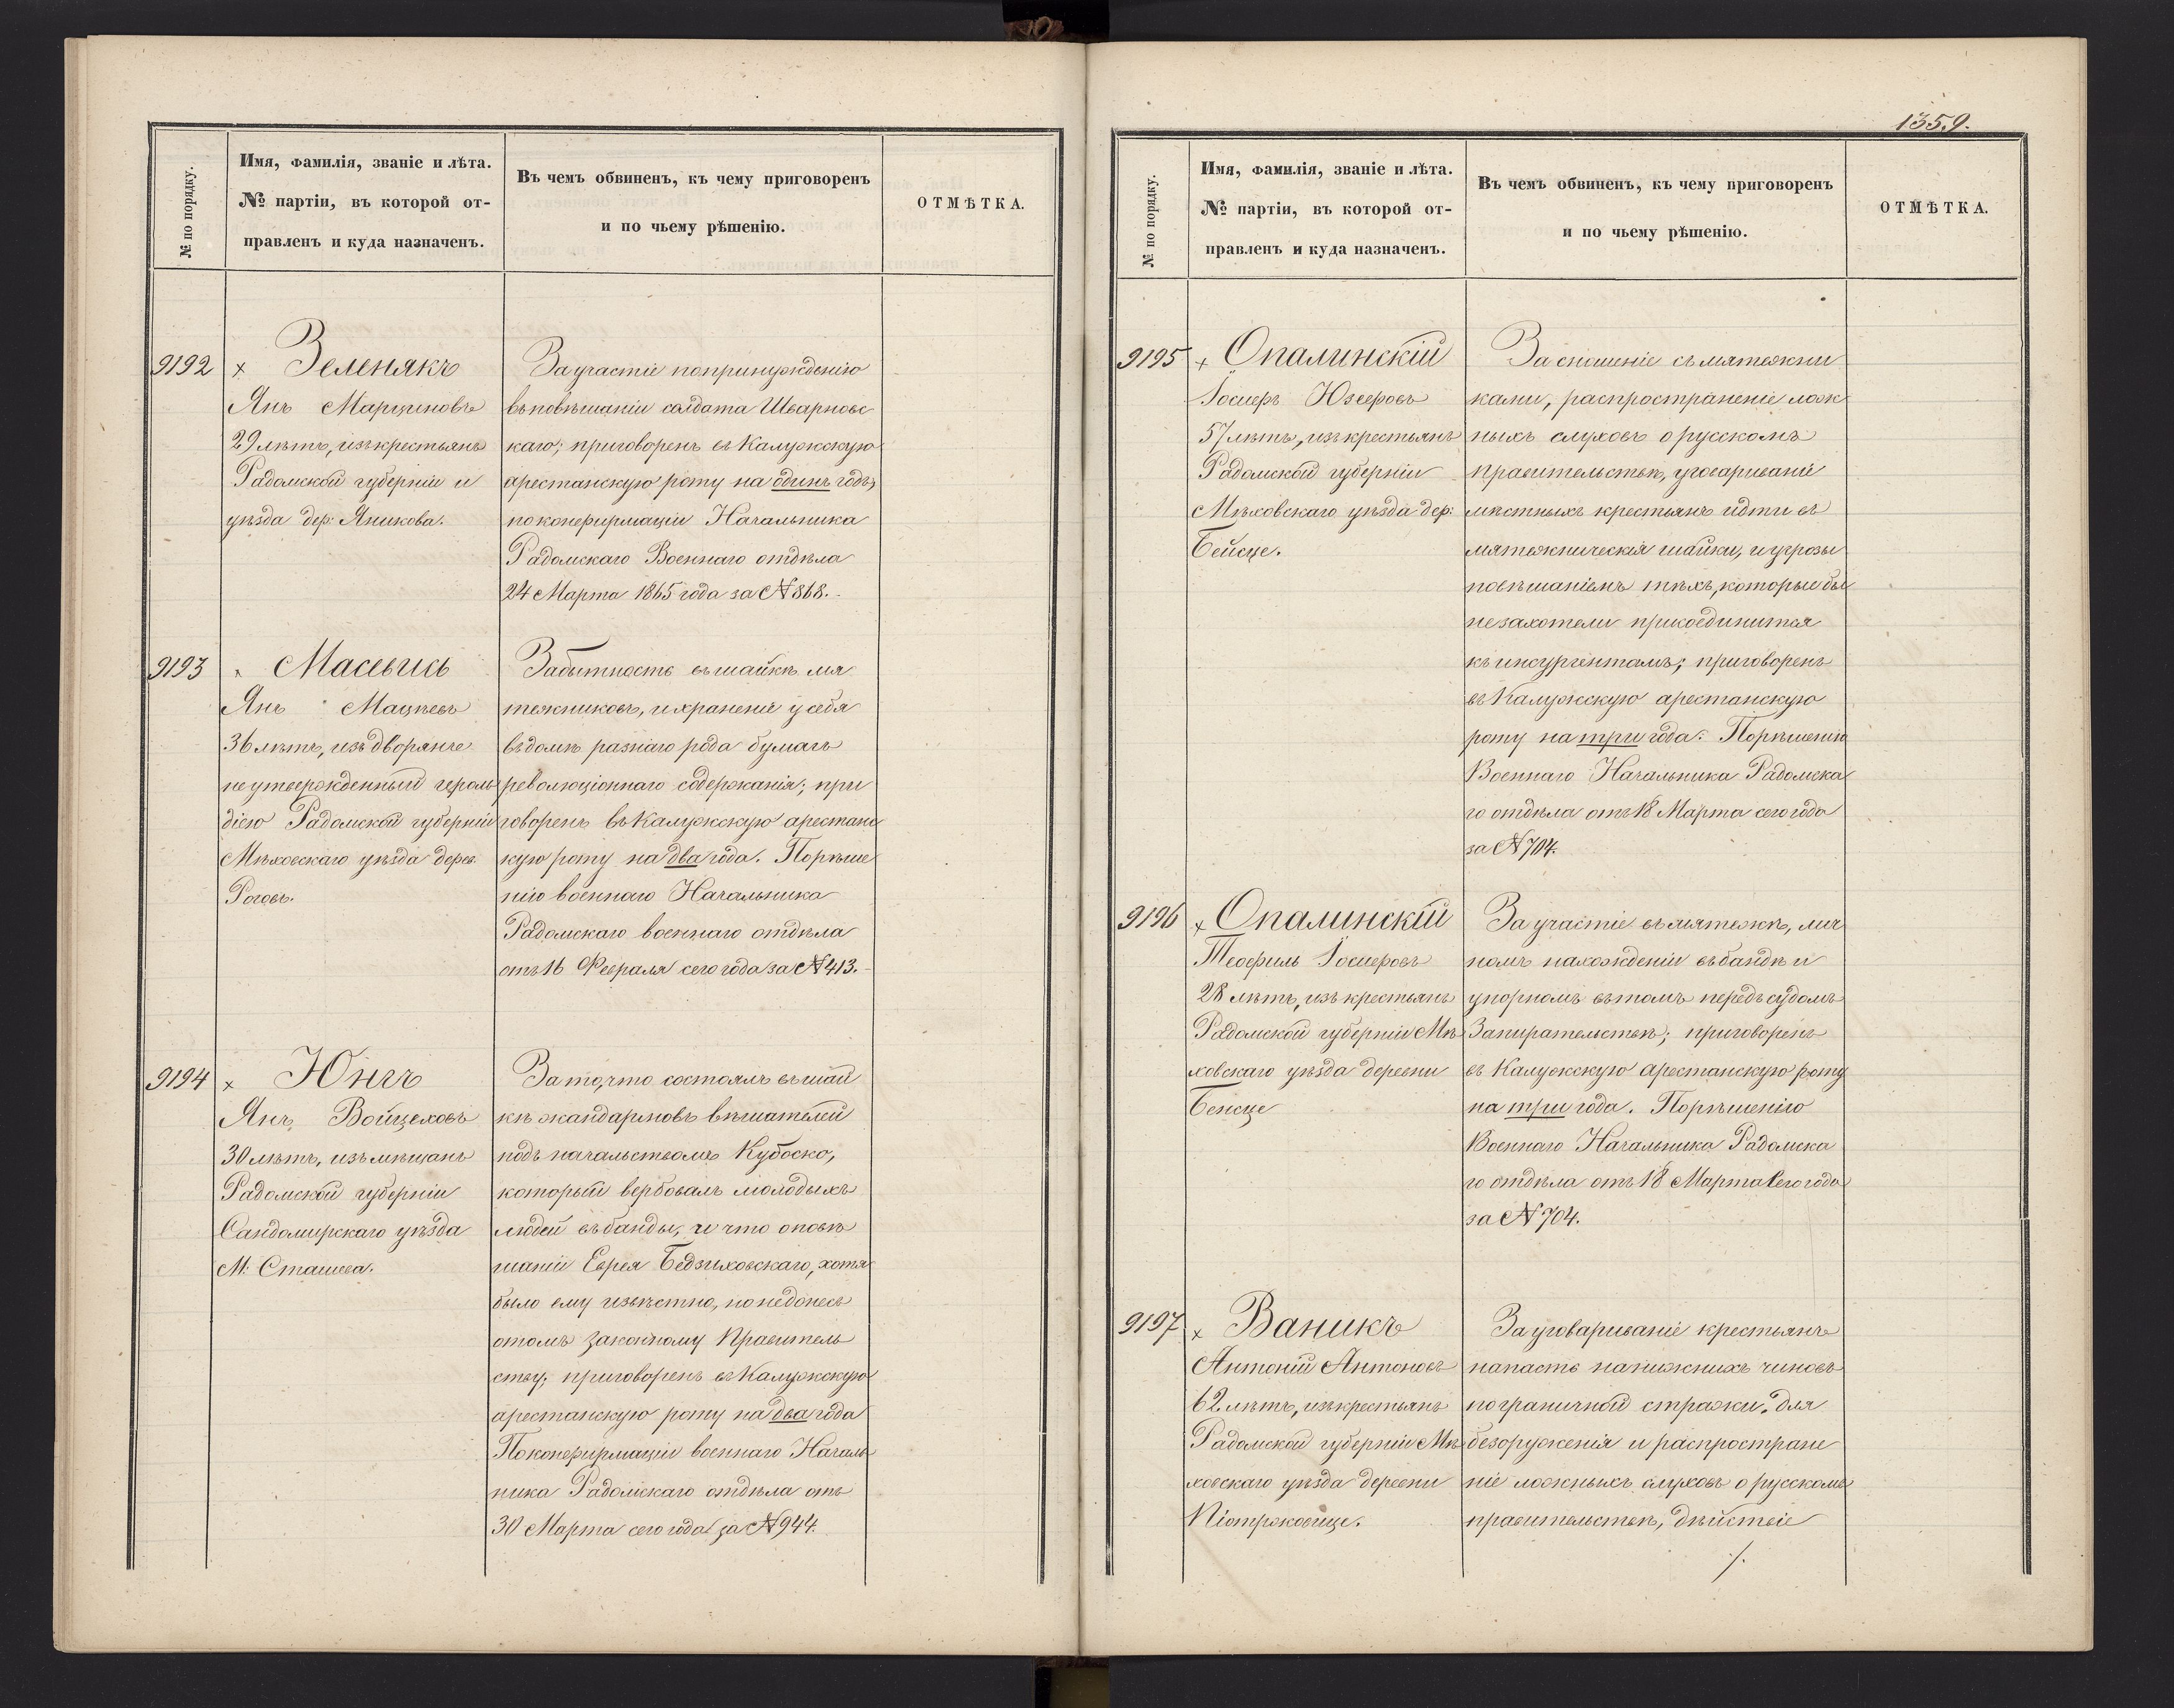 № по порядку.
Имя, фамилія, званіе и лѣта.
№ партіи, въ которой от-
правленъ и куда назначенъ.
Въ чемъ обвиненъ, къ чему приговоренъ
и по чьему рѣшенію.
ОТМѢТКА.
9192
× Зеленякъ
Янъ Марциновъ
29 лѣтъ, изъ крестьянъ
Радомской губерніи и
уѣзда дер: Яникова.
За участіе по принужденію
въ повѣшаніи солдата Шварновс
каго; приговоренъ въ Калужскую
арестанскую роту на одинъ годъ,
по конфирмаціи Начальника
Радомскаго Военнаго отдѣла
24 Марта 1865 года за № 868.
9193
× Масевись
Янъ Мацѣевъ
36 лѣтъ, изъ дворянъ
не утвержденный героль
діею Радомской губерніи
Мѣховскаго уѣзда дерев.
Роговъ.
За бытность въ шайкѣ мя
тежниковъ, и храненіе у себя
въ домѣ разнаго рода бумагъ
революціоннаго содержанія; при
говоренъ въ Калужскую арестанс
кую роту на два года. По рѣше
нію военнаго Начальника
Радомскаго военнаго отдѣла
отъ 16 Февраля сего года за № 413.
9194
× Юнгъ
Янъ Войцеховъ
30 лѣтъ, изъ мѣщанъ
Радомской губерніи
Сандомирскаго уѣзда
М: Сташева.
За то, что состоялъ въ шай
кѣ жандармовъ вѣшателей
подъ начальствомъ Кубоско,
который вербовалъ молодыхъ
людей въ банды, и что о повѣ
шаніи Еврея Бедзиховскаго, хотя
было ему извѣстно, но недонесъ
о томъ законному Правитель
ству; приговоренъ въ Калужскую
арестанскую роту на два года
По конфирмаціи военнаго Началь
ника Радомскаго отдѣла отъ
30 Марта сего года за № 944.
1359.
№ по порядку.
Имя, фамилія, званіе и лѣта.
№ партіи, въ которой от-
правленъ и куда назначенъ.
Въ чемъ обвиненъ, къ чему приговоренъ
и по чьему рѣшенію.
ОТМѢТКА.
9195
× Опалинскій
Іосифъ Юзефовъ
57 лѣтъ, изъ крестьянъ
Радомской губерніи
Мѣховскаго уѣзда дер:
Бейсце.
За сношеніе съ мятежни
ками, распространеніе лож
ныхъ слуховъ о русскомъ
правительствѣ, уговариваніе
мѣстныхъ крестьянъ идти въ
мятежническія шайки, и угрозы
повѣшаніемъ тѣхъ, которые бы
не захотели присоединится
къ инсургентамъ; приговоренъ
въ Калужскую арестанскую
роту на три года. По рѣшенію
Военнаго Начальника Радомска
го отдѣла отъ 18 Марта сего года
за № 704.
9196
× Опалинскій
Теофиль Іосифовъ
28 лѣтъ, изъ крестьянъ
Радомской губерніи Мѣ
ховскаго уѣзда деревни
Бейсце
За участіе въ мятежѣ, лич
номъ нахожденіи въ бандѣ и
упорномъ въ томъ передъ судомъ
Запирательствѣ; приговоренъ
въ Калужскую арестанскую роту
на три года. По рѣшенію
Военнаго Начальника Радомска
го отдѣла отъ 18 Марта сего года
за № 704.
9197
× Ваникъ
Антоній Антоновъ
62 лѣтъ, изъ крестьянъ
Радомской губерніи Мѣ
ховскаго уѣзда деревни
Піотрковице.
За уговариваніе крестьянъ
напасть на нижнихъ чиновъ
пограничной стражи, для
безоруженія и распростране
ніе ложныхъ слуховъ о русскомъ
правительствѣ, дѣйствіе
/.